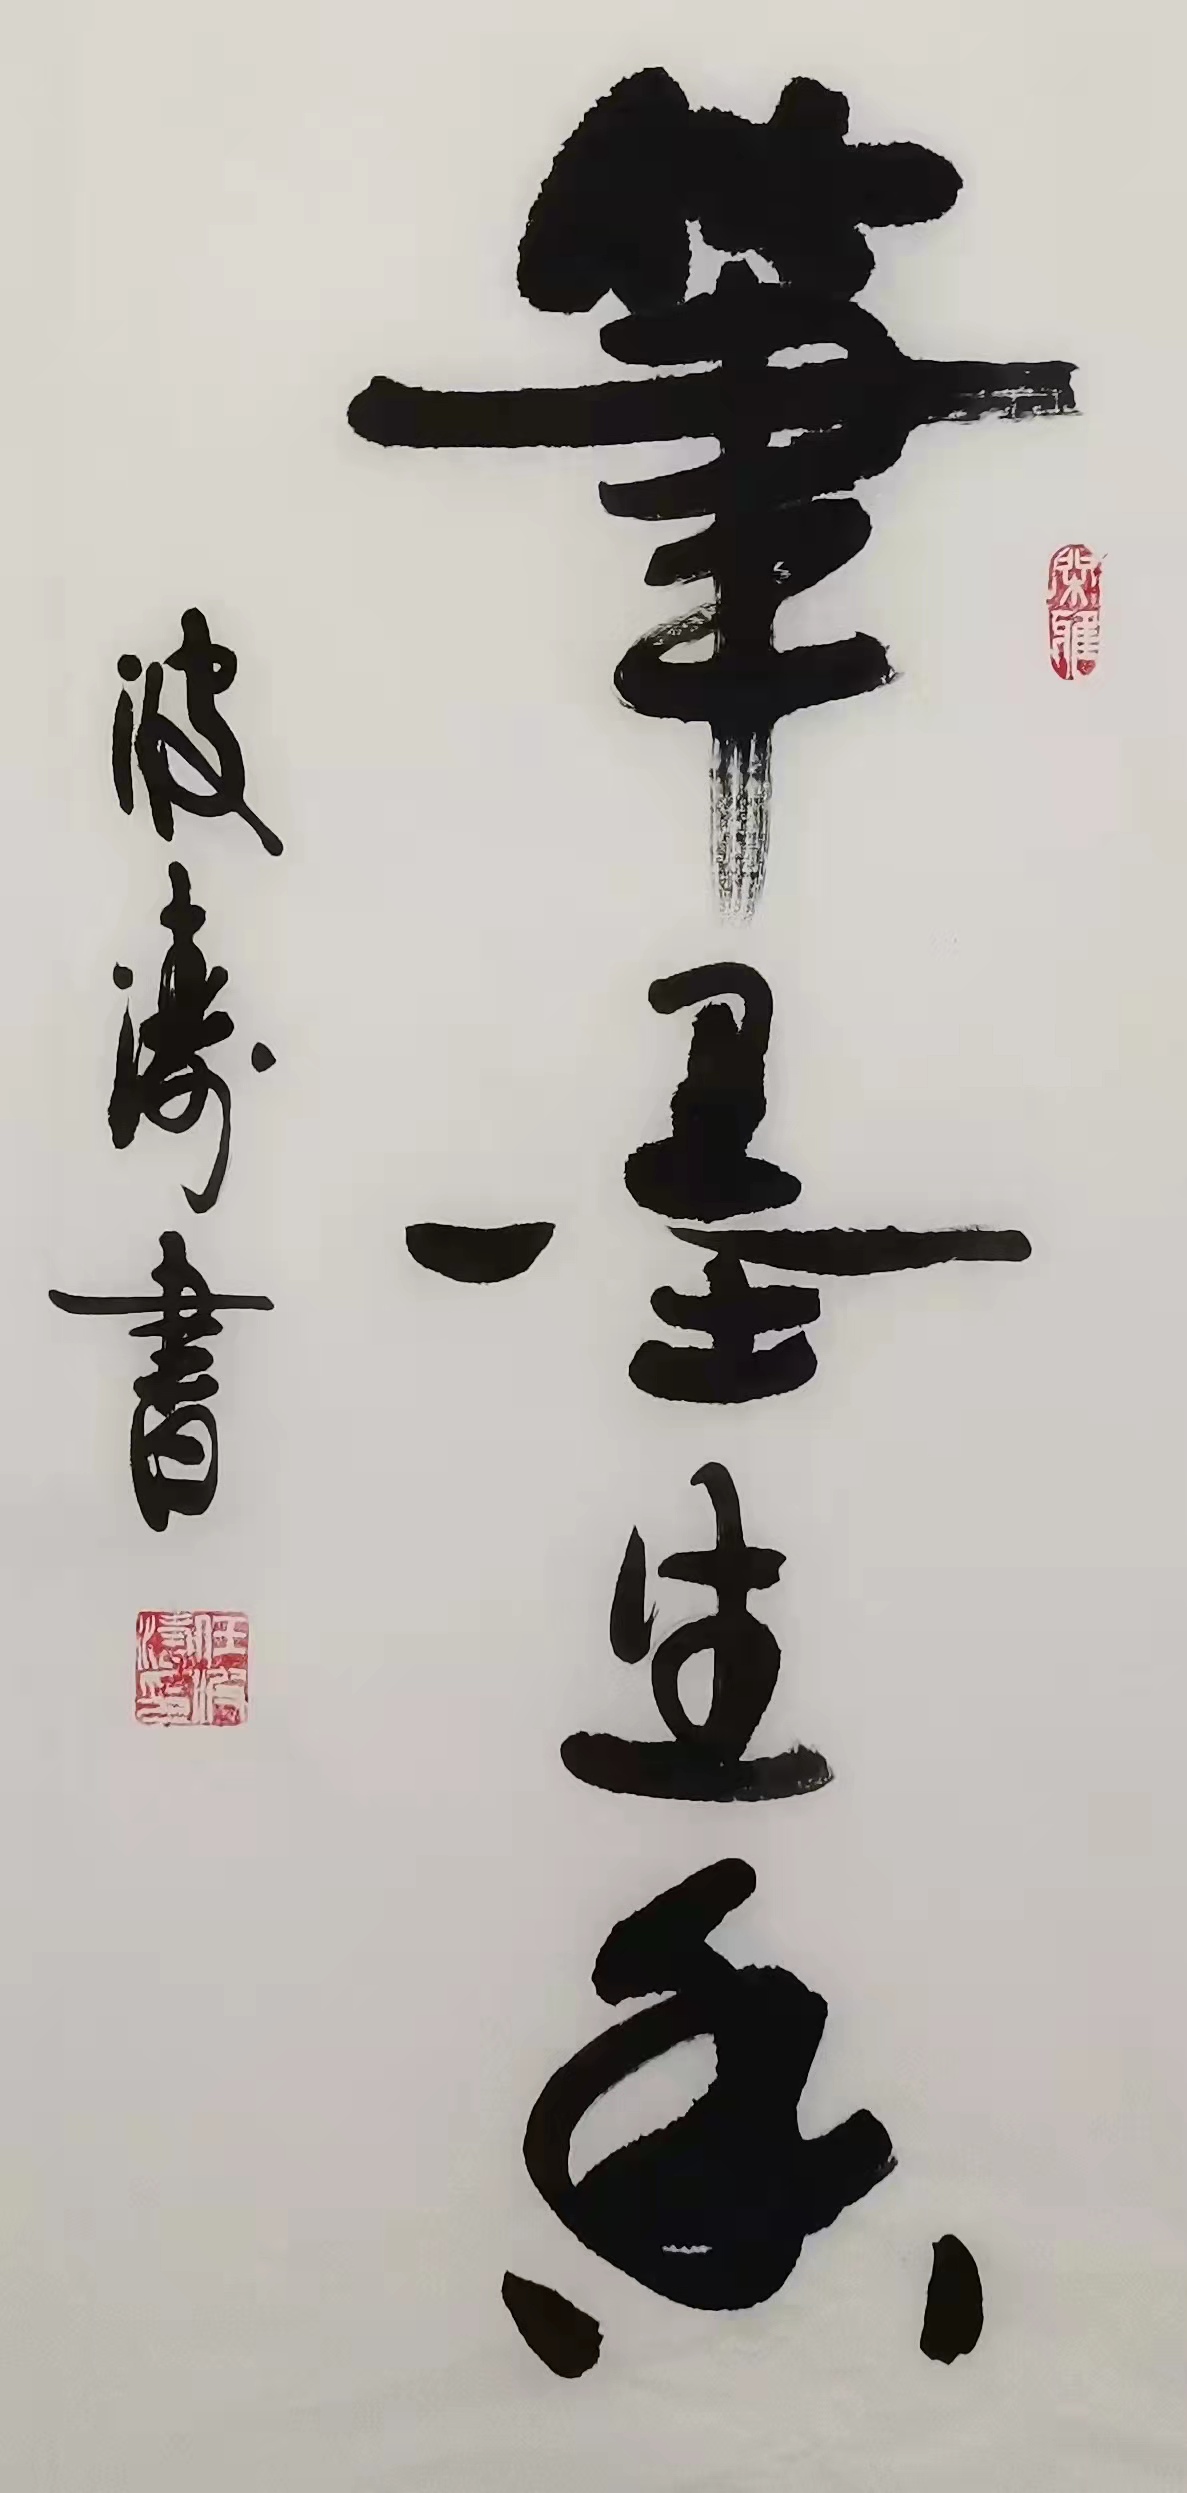 筆墨生香
波濤書